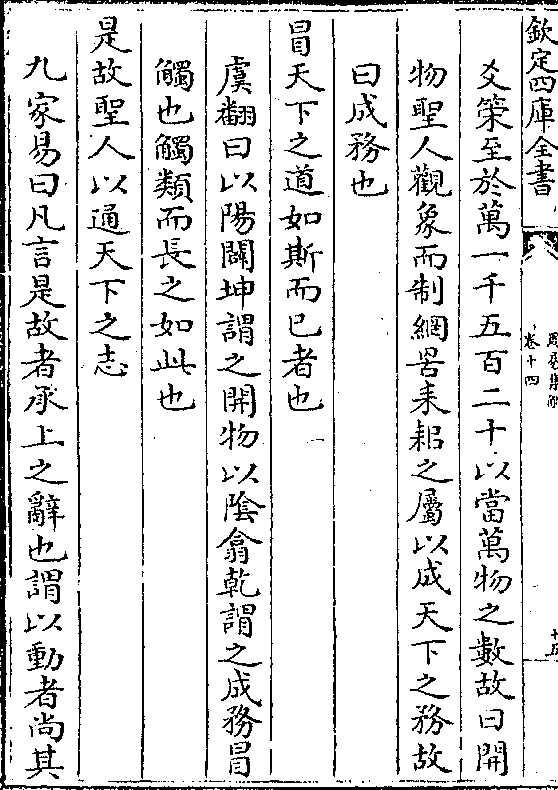 欽定四庫全書
卷十四
爻策至於萬一千五百二十以當萬物之數故曰開
物聖人觀象而制網罟耒耜之屬以成天下之務故
曰成務也
冒天下之道如斯而已者也
虞翻曰以陽闢坤謂之開物以陰翕乾謂之成務冒
觸也觸類而長之如此也
是故聖人以通天下之志
九家易曰凡言是故者承上之辭也謂以動者尚其